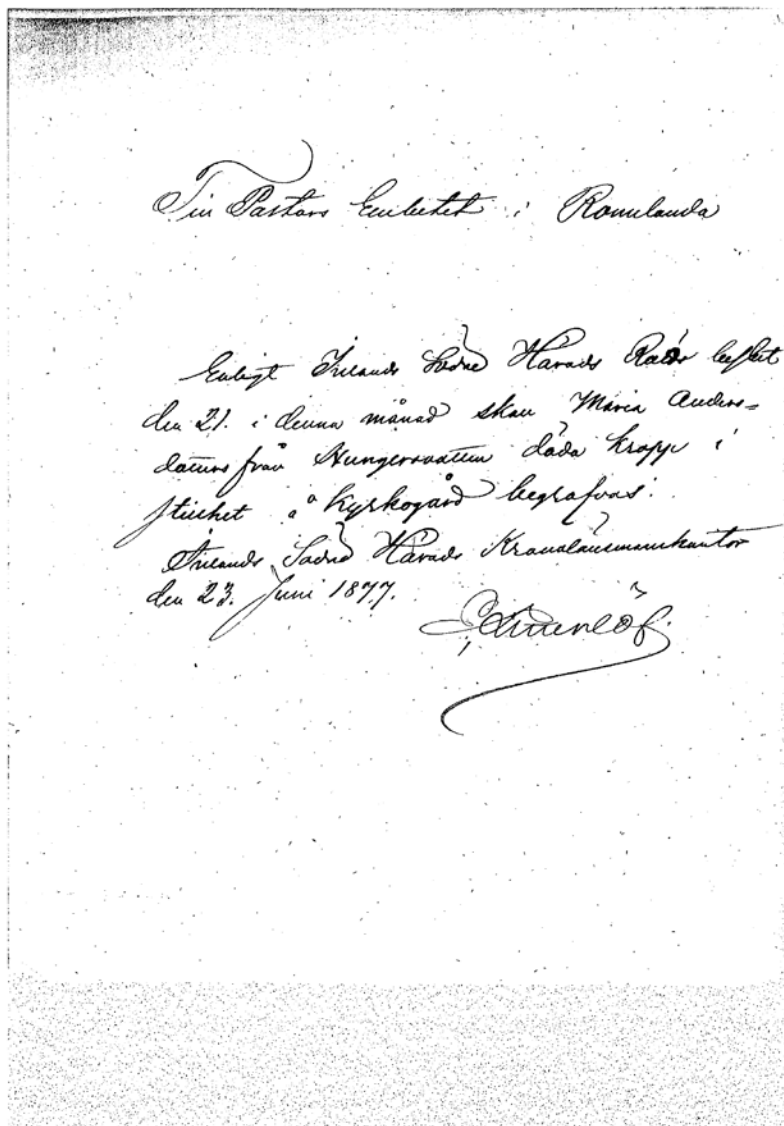 Till Pastors Embetet i Romelanda
Enligt Inlands Södre Härads Rätts beslut
den 21. i denna månad skall Maria Anders-
dotters från Hungersvatten döda kropp i
stillhet å kyrkogård begrafvas.
Inlands Södre Härads Kronolänsmanskontor
den 23. Juni 1877.